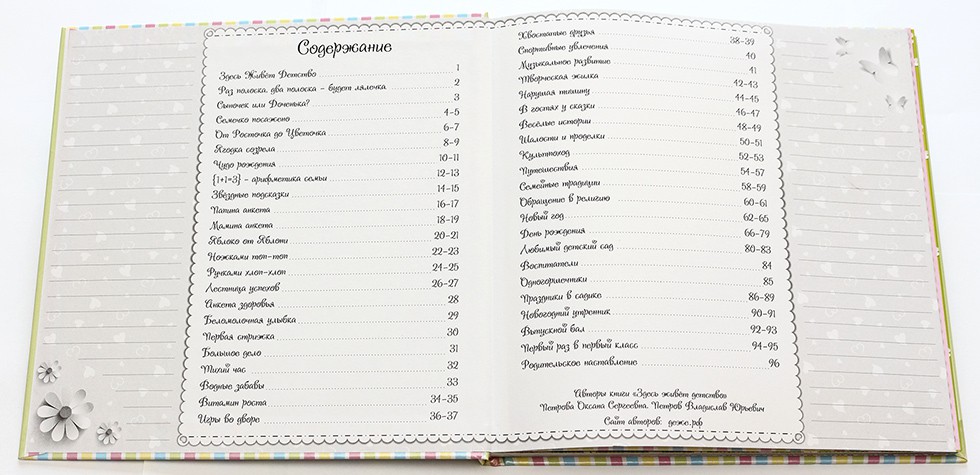 Содержание
Здесь Живёт Детство 1
Раз полоска, два полоска - будет лялечка 2
Сыночек или Доченька? 3
Семечко посажено 4-5
От Росточка до Цветочка 6-7
Ягодка созрела 8-9
Чудо рождения 10-11
{1+1=3} - арифметика семьи 12-13
Звёздные подсказки 14-15
Папина анкета 16-17
Мамина анкета 18-19
Яблоко от Яблони 20-21
Ножками топ-топ 22-23
Ручками хлоп-хлоп 24-25
Лестница успехов 26-27
Анкета здоровья 28
Беломолочная улыбка 29
Первая стрижка 30
Большое дело 31
Тихий час 32
Водные забавы 33
Витамин роста 34-35
Игры во дворе 36-37
Хвостатые друзья 38-39
Спортивные увлечения 40
Музыкальное развитие 41
Творческая жилка 42-43
Нарушая тишину 44-45
В гостях у сказки 46-47
Весёлые истории 48-49
Шалости и проделки 50-51
Культпоход 52-53
Путешествия 54-57
Семейные традиции 58-59
Обращение в религию 60-61
Новый год 62-65
День рождения 66-79
Любимый детский сад 80-83
Воспитатели 84
Одногоршечники 85
Праздники в садике 86-89
Новогодний утренник 90-91
Выпускной бал 92-93
Первый раз в первый класс 94-95
Родительское наставление 96
Авторы книги «Здесь живёт детство»
Петрова Оксана Сергеевна, Петров Владислав Юрьевич
Сайт авторов: деже.рф